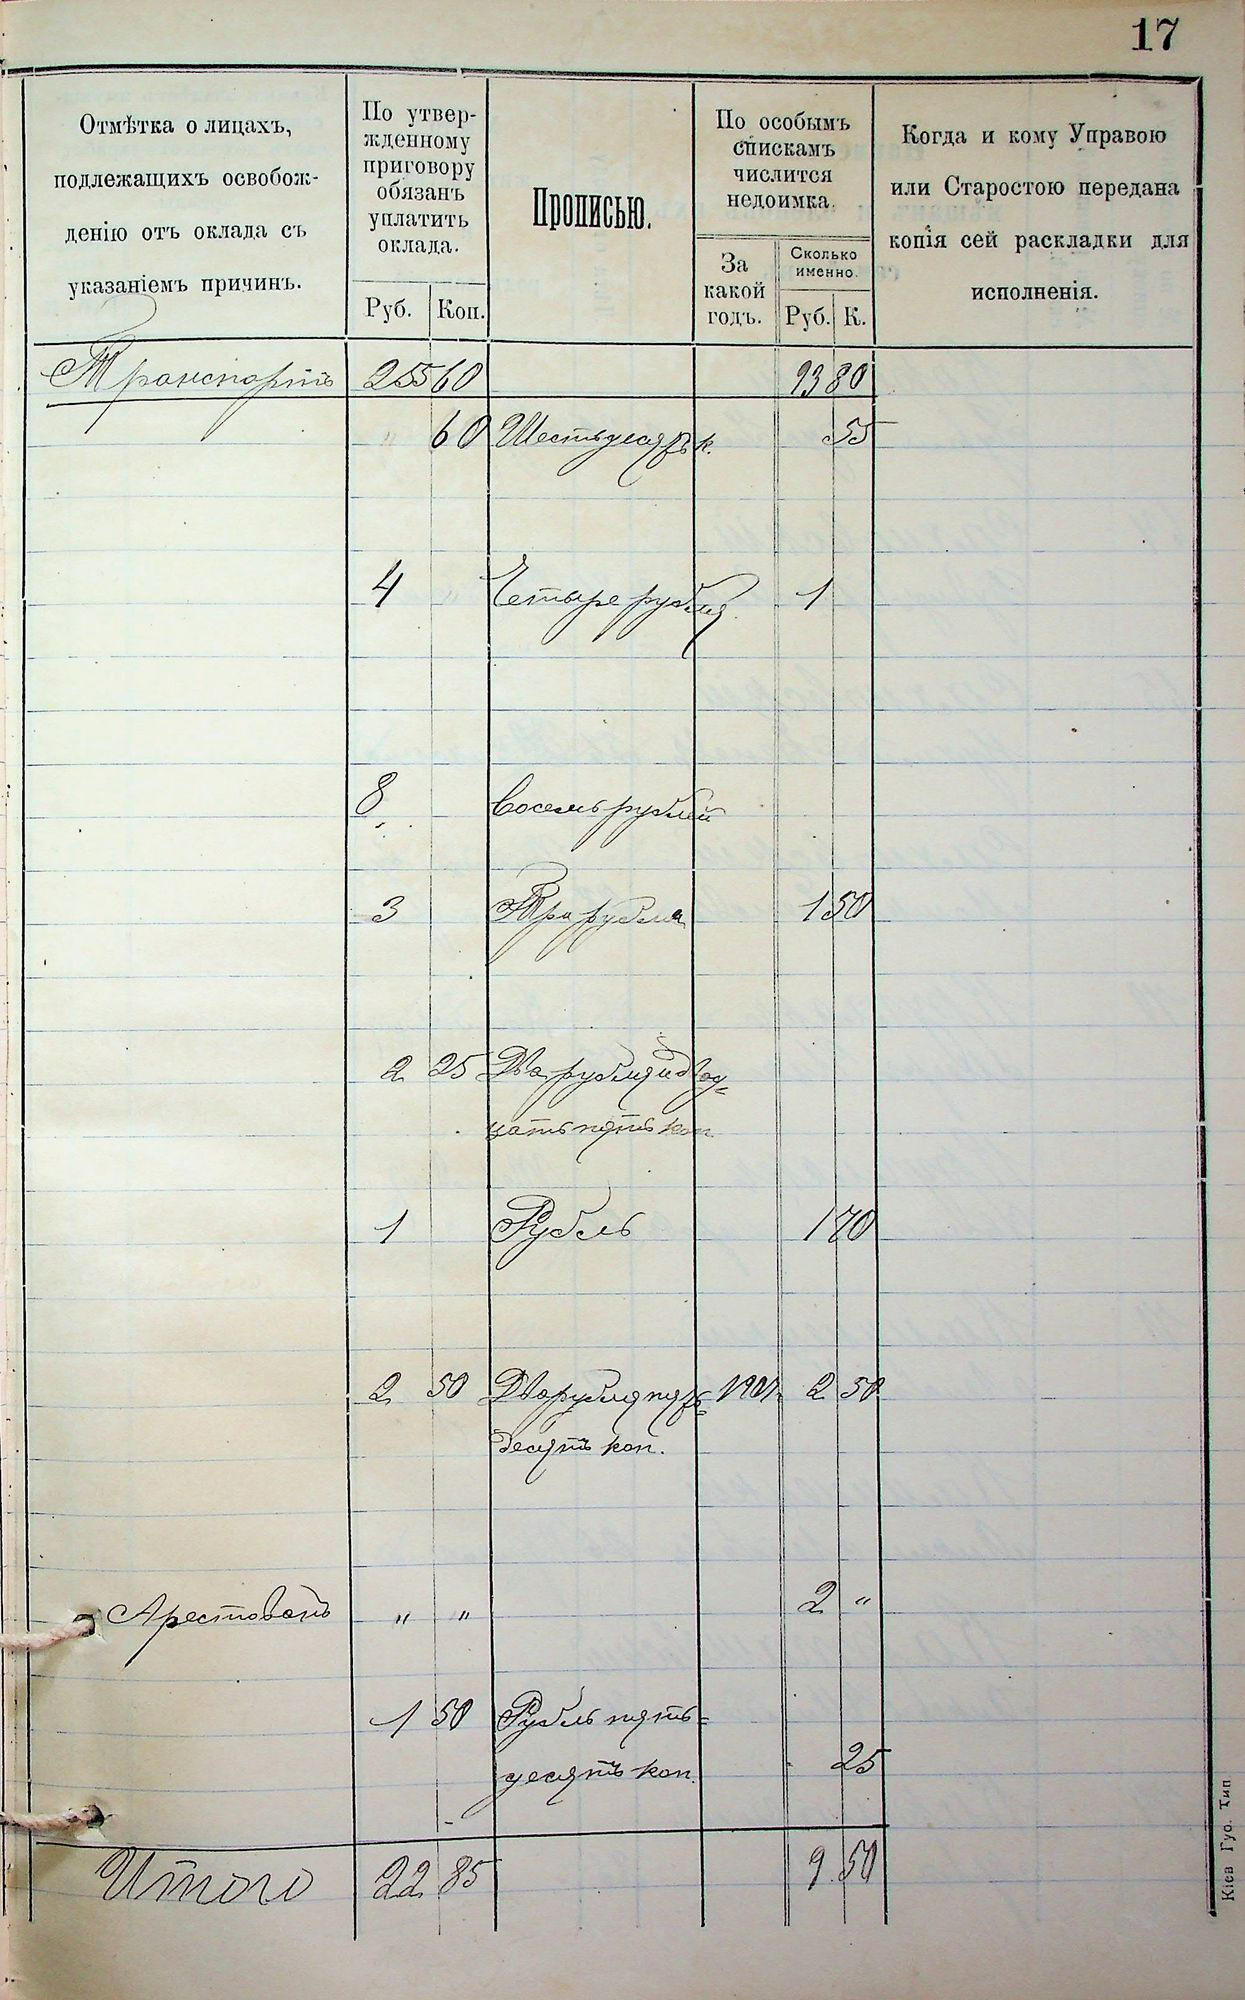 17
Отмѣтка о лицахъ,
подлежащихъ освобож-
денію отъ оклада съ
указаніемъ причинъ.
По утвер-
жденному
приговору
обязанъ
уплатить
оклада.
Руб. Коп.
Прописью.
По особымъ
спискамъ
числится
недоимка.
За
какой
годъ.
Сколько
именно.
Руб. К.
Когда и кому Управою
или Старостою передана
копія сей раскладки для
исполненія.
Транспортъ 255 60 93 80
" 60 Шестьдесятъ к. 55
4 " Четыре рубля 1
8 Восемь рублей
3 Три рубля 1 50
2 25 Два рубля двад=
цать пять коп.
1 Рубль 1 70
2 50 Два рубля пять= 1901 2 50
десятъ коп.
Арестованъ " " 2 "
1 50 Рубль пять=
десятъ коп. 25
Итого 22 85 9 50
Кіев Гуо. Тип